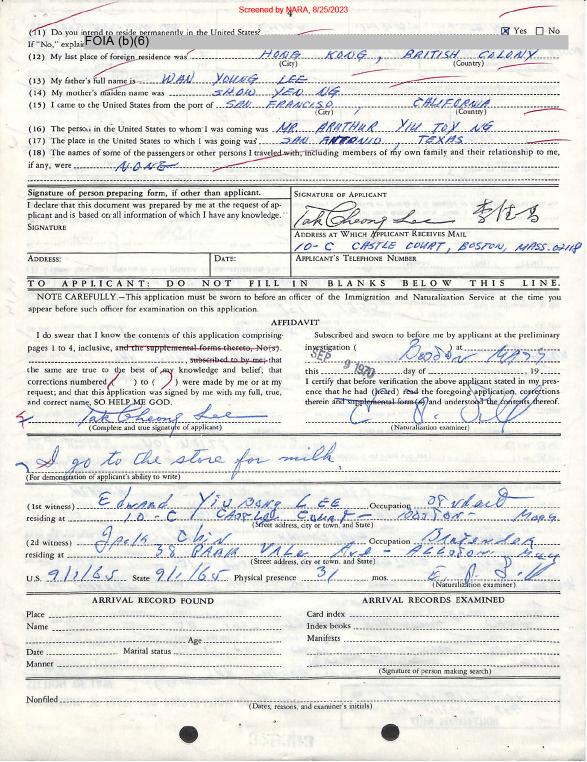 Screened by NARA, 8/25/2023
4
(11) Do you intend to reside permanently in the United States? ☒ Yes ☐ No
If "No," explain FOIA (b)(6)
(12) My last place of foreign residence was HONG KONG, BRITISH COLONY
(City) (Country)
(13) My father's full name is WAN YOUNG LEE
(14) My mother's maiden name was SHOW YEN NG
(15) I came to the United States from the port of SAN FRANCISCO, CALIFORNIA
(City) (Country)
(16) The person in the United States to whom I was coming was MR. ARUTHUR YIU TOY NG
(17) The place in the United States to which I was going was SAN ANTONIO, TEXAS
(18) The names of some of the passengers or other persons I traveled with, including members of my own family and their relationship to me,
if any, were NONE
Signature of person preparing form, if other than applicant.
I declare that this document was prepared by me at the request of ap-
plicant and is based on all information of which I have any knowledge.
SIGNATURE
ADDRESS: DATE:
SIGNATURE OF APPLICANT
Tak Cheong Lee 李
ADDRESS AT WHICH APPLICANT RECEIVES MAIL
10-C CASTLE COURT, BOSTON, MASS. 02118
APPLICANT'S TELEPHONE NUMBER
TO APPLICANT: DO NOT FILL IN BLANKS BELOW THIS LINE.
NOTE CAREFULLY.—This application must be sworn to before an officer of the Immigration and Naturalization Service at the time you
appear before such officer for examination on this application.
AFFIDAVIT
I do swear that I know the contents of this application comprising
pages 1 to 4, inclusive, and the supplemental forms thereto, No(s).
subscribed to by me; that
the same are true to the best of my knowledge and belief; that
corrections numbered ( ) to ( ) were made by me or at my
request; and that this application was signed by me with my full, true,
and correct name, SO HELP ME GOD.
Tak Cheong Lee
(Complete and true signature of applicant)
Subscribed and sworn to before me by applicant at the preliminary
investigation ( ) at Boston MASS
this SEP 9 1970 day of , 19
I certify that before verification the above applicant stated in my pres-
ence that he had (heard) read the foregoing application, corrections
therein and supplemental form(s) and understood the contents thereof.
(Naturalization examiner)
I go to the store for milk.
(For demonstration of applicant's ability to write)
(1st witness) Edward Yiu Bong LEE Occupation
residing at 10-C CASTLE COURT - BOSTON - Mass
(Street address, city or town, and State)
(2d witness) Jack Chin Occupation Bartender
residing at 38 PARK VALE Ave - ALLSTON Mass
(Street address, city or town, and State)
U.S. 9/1/65 State 9/1/65 Physical presence 31 mos.
(Naturalization examiner)
ARRIVAL RECORD FOUND
Place
Name
Age
Date Marital status
Manner
ARRIVAL RECORDS EXAMINED
Card index
Index books
Manifests
(Signature of person making search)
Nonfiled
(Dates, reasons, and examiner's initials)